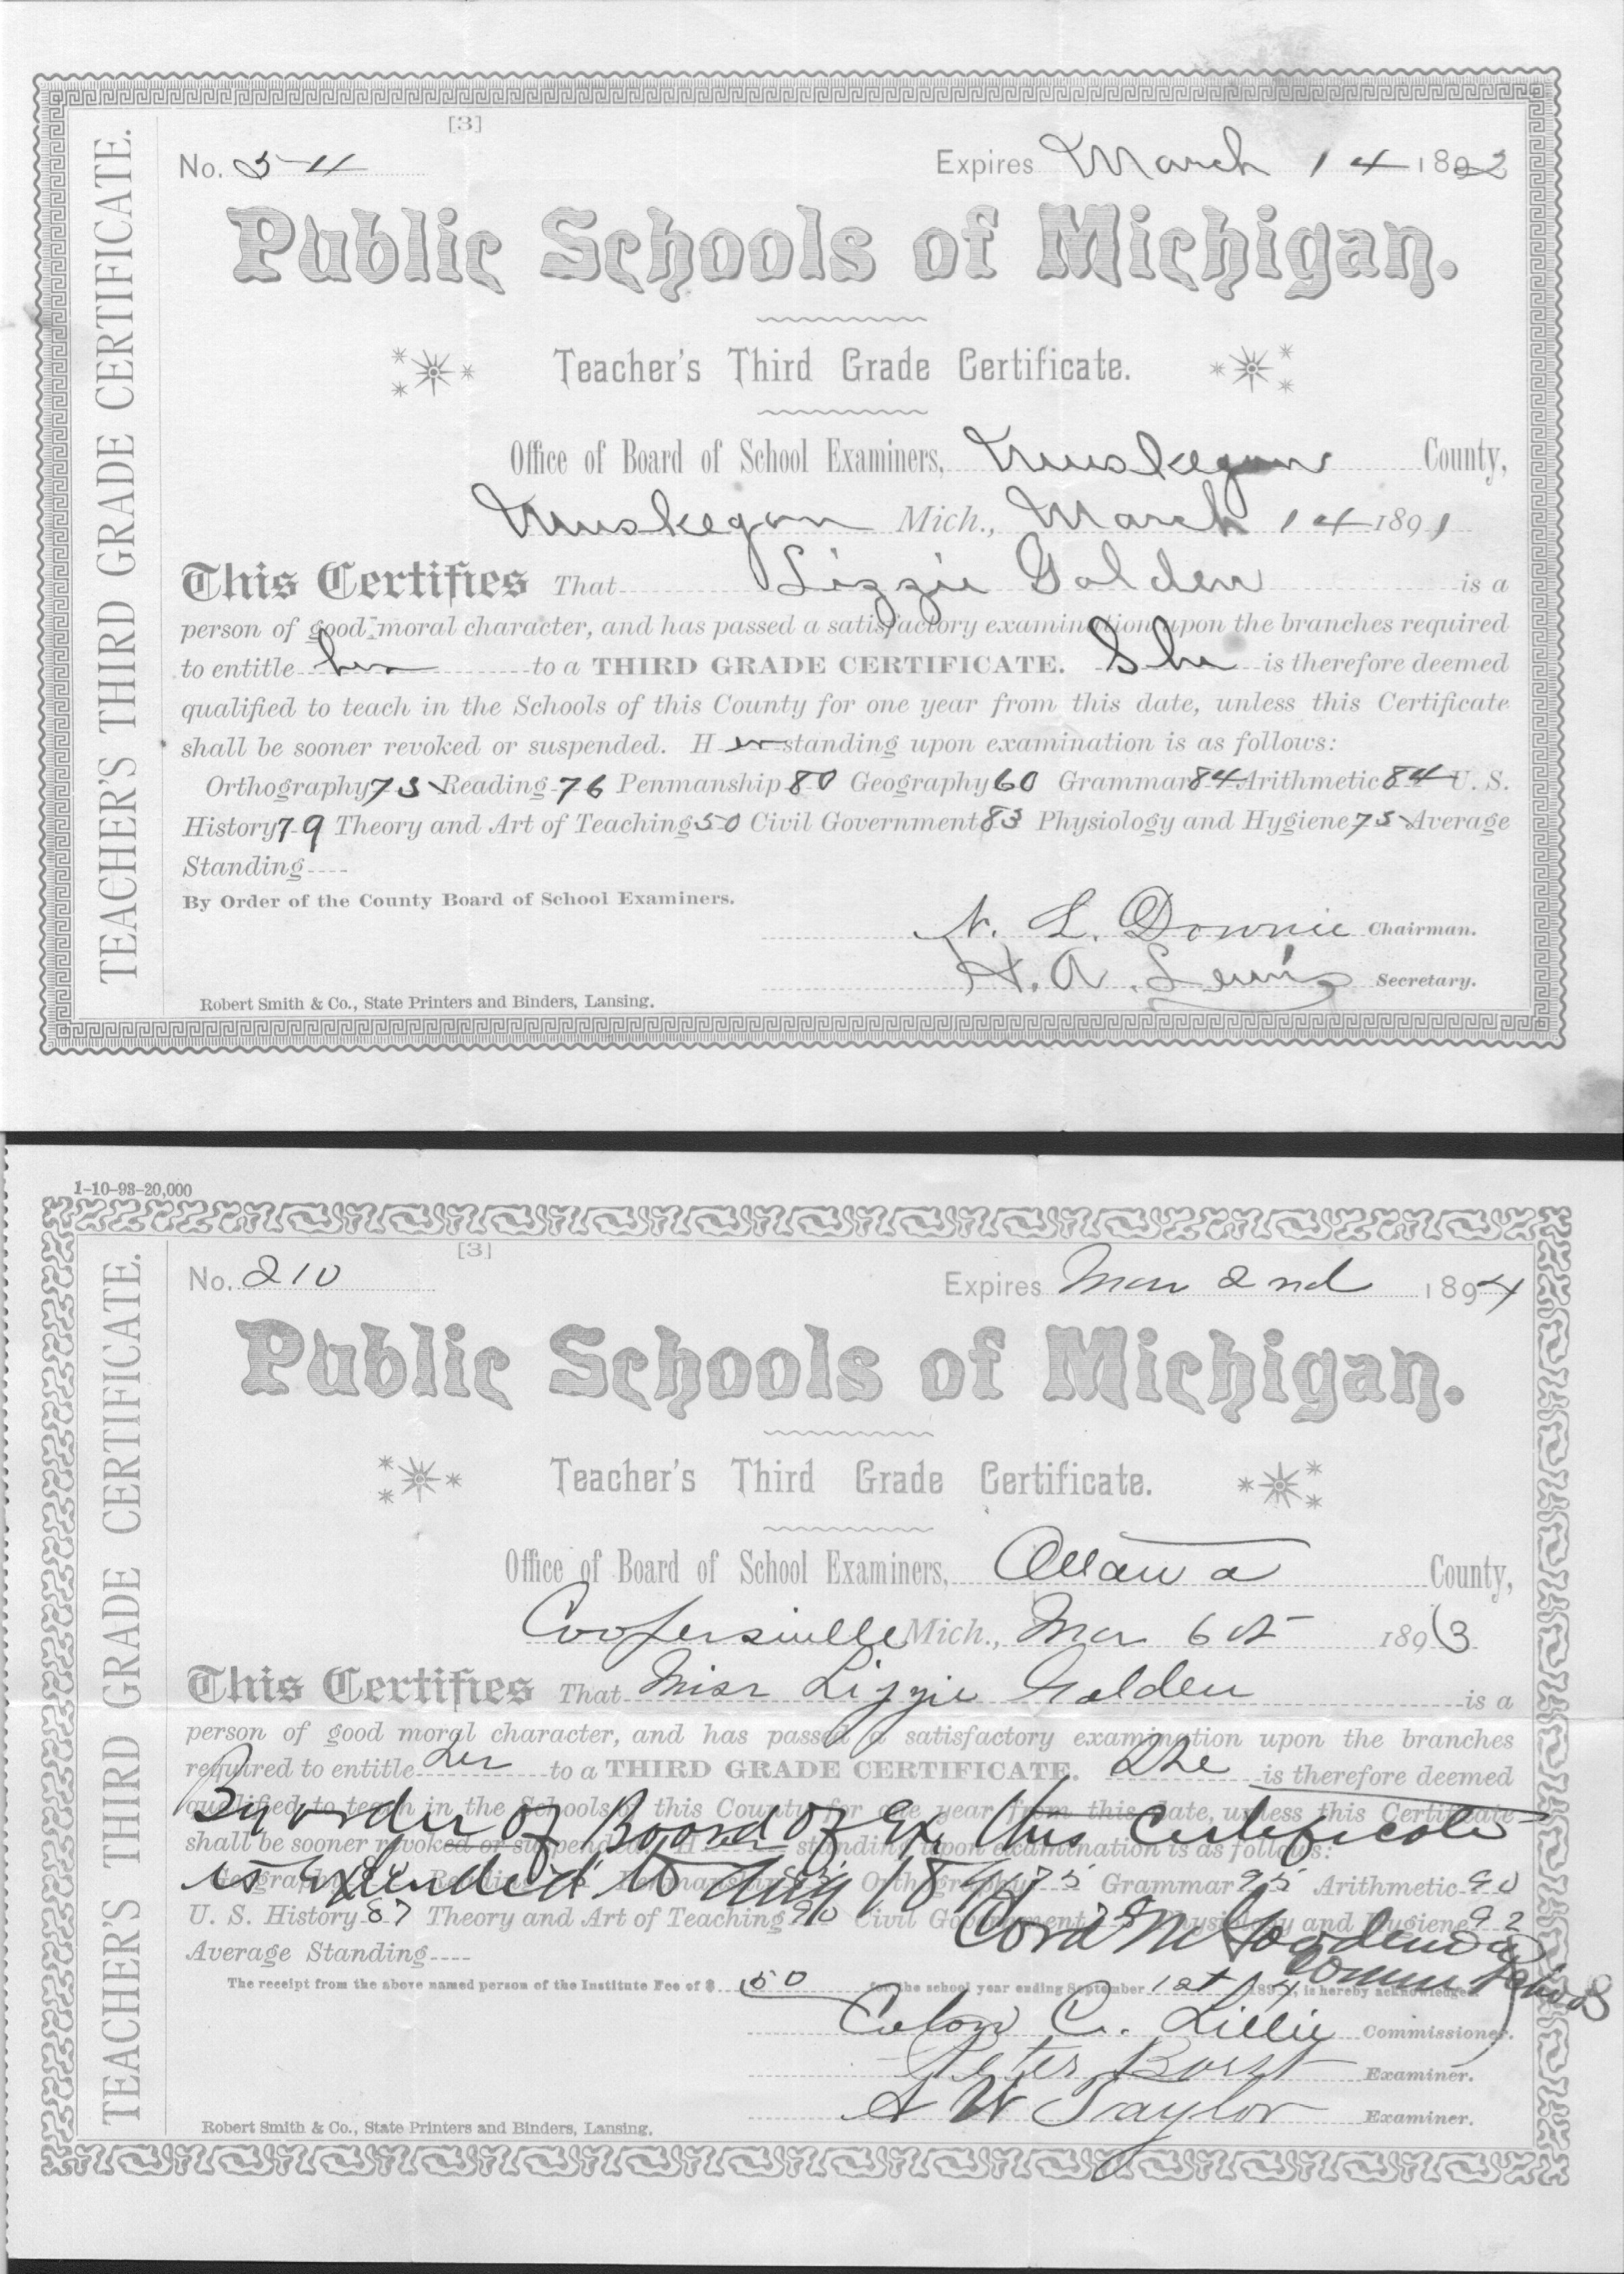 [3]
No. 54 Expires March 14 1892
Public Schools of Michigan.
Teacher's Third Grade Certificate.
Office of Board of School Examiners, Muskegon County,
Muskegon Mich., March 14 1891
This Certifies That Lizzie Golden is a
person of good moral character, and has passed a satisfactory examination upon the branches required
to entitle her to a THIRD GRADE CERTIFICATE. She is therefore deemed
qualified to teach in the Schools of this County for one year from this date, unless this Certificate
shall be sooner revoked or suspended. Her standing upon examination is as follows:
Orthography 75 Reading 76 Penmanship 80 Geography 60 Grammar 84 Arithmetic 84 U. S.
History 79 Theory and Art of Teaching 50 Civil Government 83 Physiology and Hygiene 75 Average
Standing
By Order of the County Board of School Examiners.
N. L. Downie Chairman.
H. A. Lewis Secretary.
Robert Smith & Co., State Printers and Binders, Lansing.
TEACHER'S THIRD GRADE CERTIFICATE.
1-10-93-20,000
[3]
No. 210 Expires Mar 2nd 1894
Public Schools of Michigan.
Teacher's Third Grade Certificate.
Office of Board of School Examiners, Ottawa County,
Coopersville Mich., Mar 1893
This Certifies That Miss Lizzie Golden is a
person of good moral character, and has passed a satisfactory examination upon the branches
required to entitle her to a THIRD GRADE CERTIFICATE. She is therefore deemed
qualified to teach in the Schools of this County for one year from this date, unless this Certificate
By order of Board of Ex this Certificate
shall be sooner revoked or suspended. Her standing upon examination is as follows:
is extended to Aug
Geography Reading Penmanship Orthography 75 Grammar 95 Arithmetic 90
U. S. History 87 Theory and Art of Teaching 90 Civil Government Physiology and Hygiene 92
Cora M Goodenow
Average Standing
Comm Schools
The receipt from the above named person of the Institute Fee of $ .50 for the school year ending September 1st 1894, is hereby acknowledged.
Colon C. Lillie Commissioner.
Peter Borst Examiner.
A W Taylor Examiner.
Robert Smith & Co., State Printers and Binders, Lansing.
TEACHER'S THIRD GRADE CERTIFICATE.